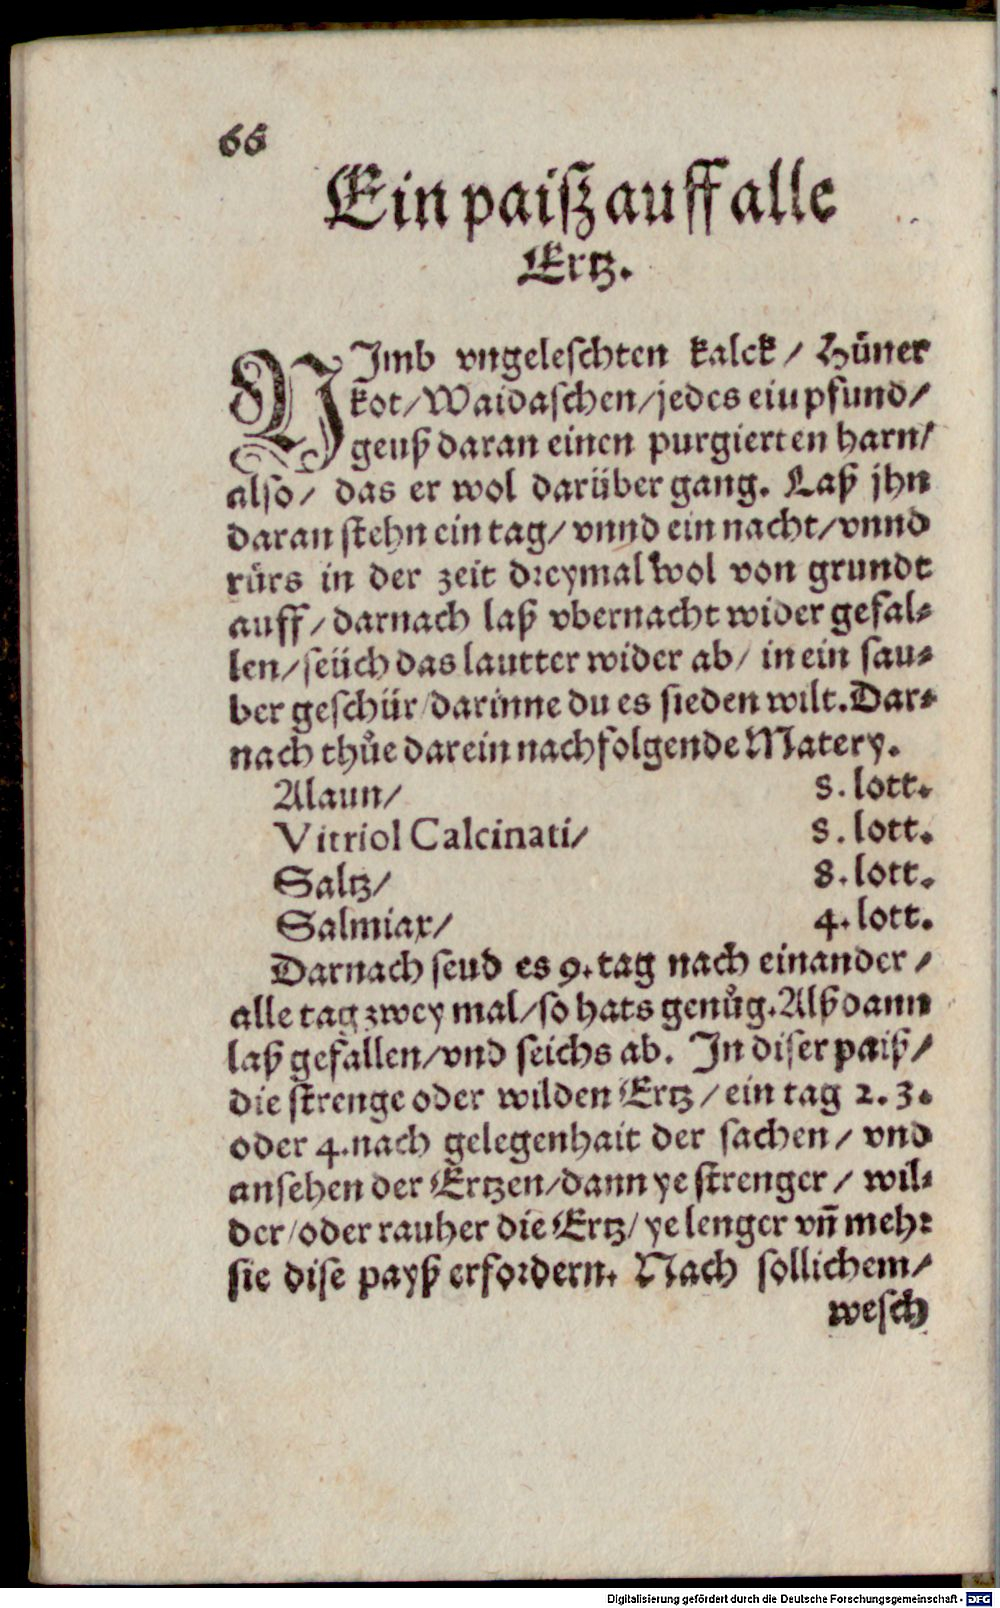 66
Ein paisz auff alle
Ertz.
NJmb vngeleschten kalck / Hüner
kot / Waidaschen / jedes eiu pfund /
geuß daran einen purgierten harn /
also / das er wol darüber gang. Laß jhn
daran stehn ein tag / vnnd ein nacht / vnnd
rürs in der zeit dreymal wol von grundt
auff / darnach laß vbernacht wider gefal-
len / seüch das lautter wider ab / in ein sau-
ber geschür / darinne du es sieden wilt. Dar-
nach thůe darein nachfolgende Matery.
Alaun / 8. lott.
Vitriol Calcinati / 8. lott.
Saltz / 8. lott.
Salmiax / 4. lott.
Darnach seud es 9. tag nach einander /
alle tag zwey mal / so hats genůg. Alß dann
laß gefallen / vnd seichs ab. In diser paiß /
die strenge oder wilden Ertz / ein tag 2. 3.
oder 4. nach gelegenhait der sachen / vnd
ansehen der Ertzen / dann ye strenger / wil-
der / oder rauher die Ertz / ye lenger vn̄ mehr
sie dise payß erfordern. Nach sollichem /
wesch
Digitalisierung gefördert durch die Deutsche Forschungsgemeinschaft - DFG